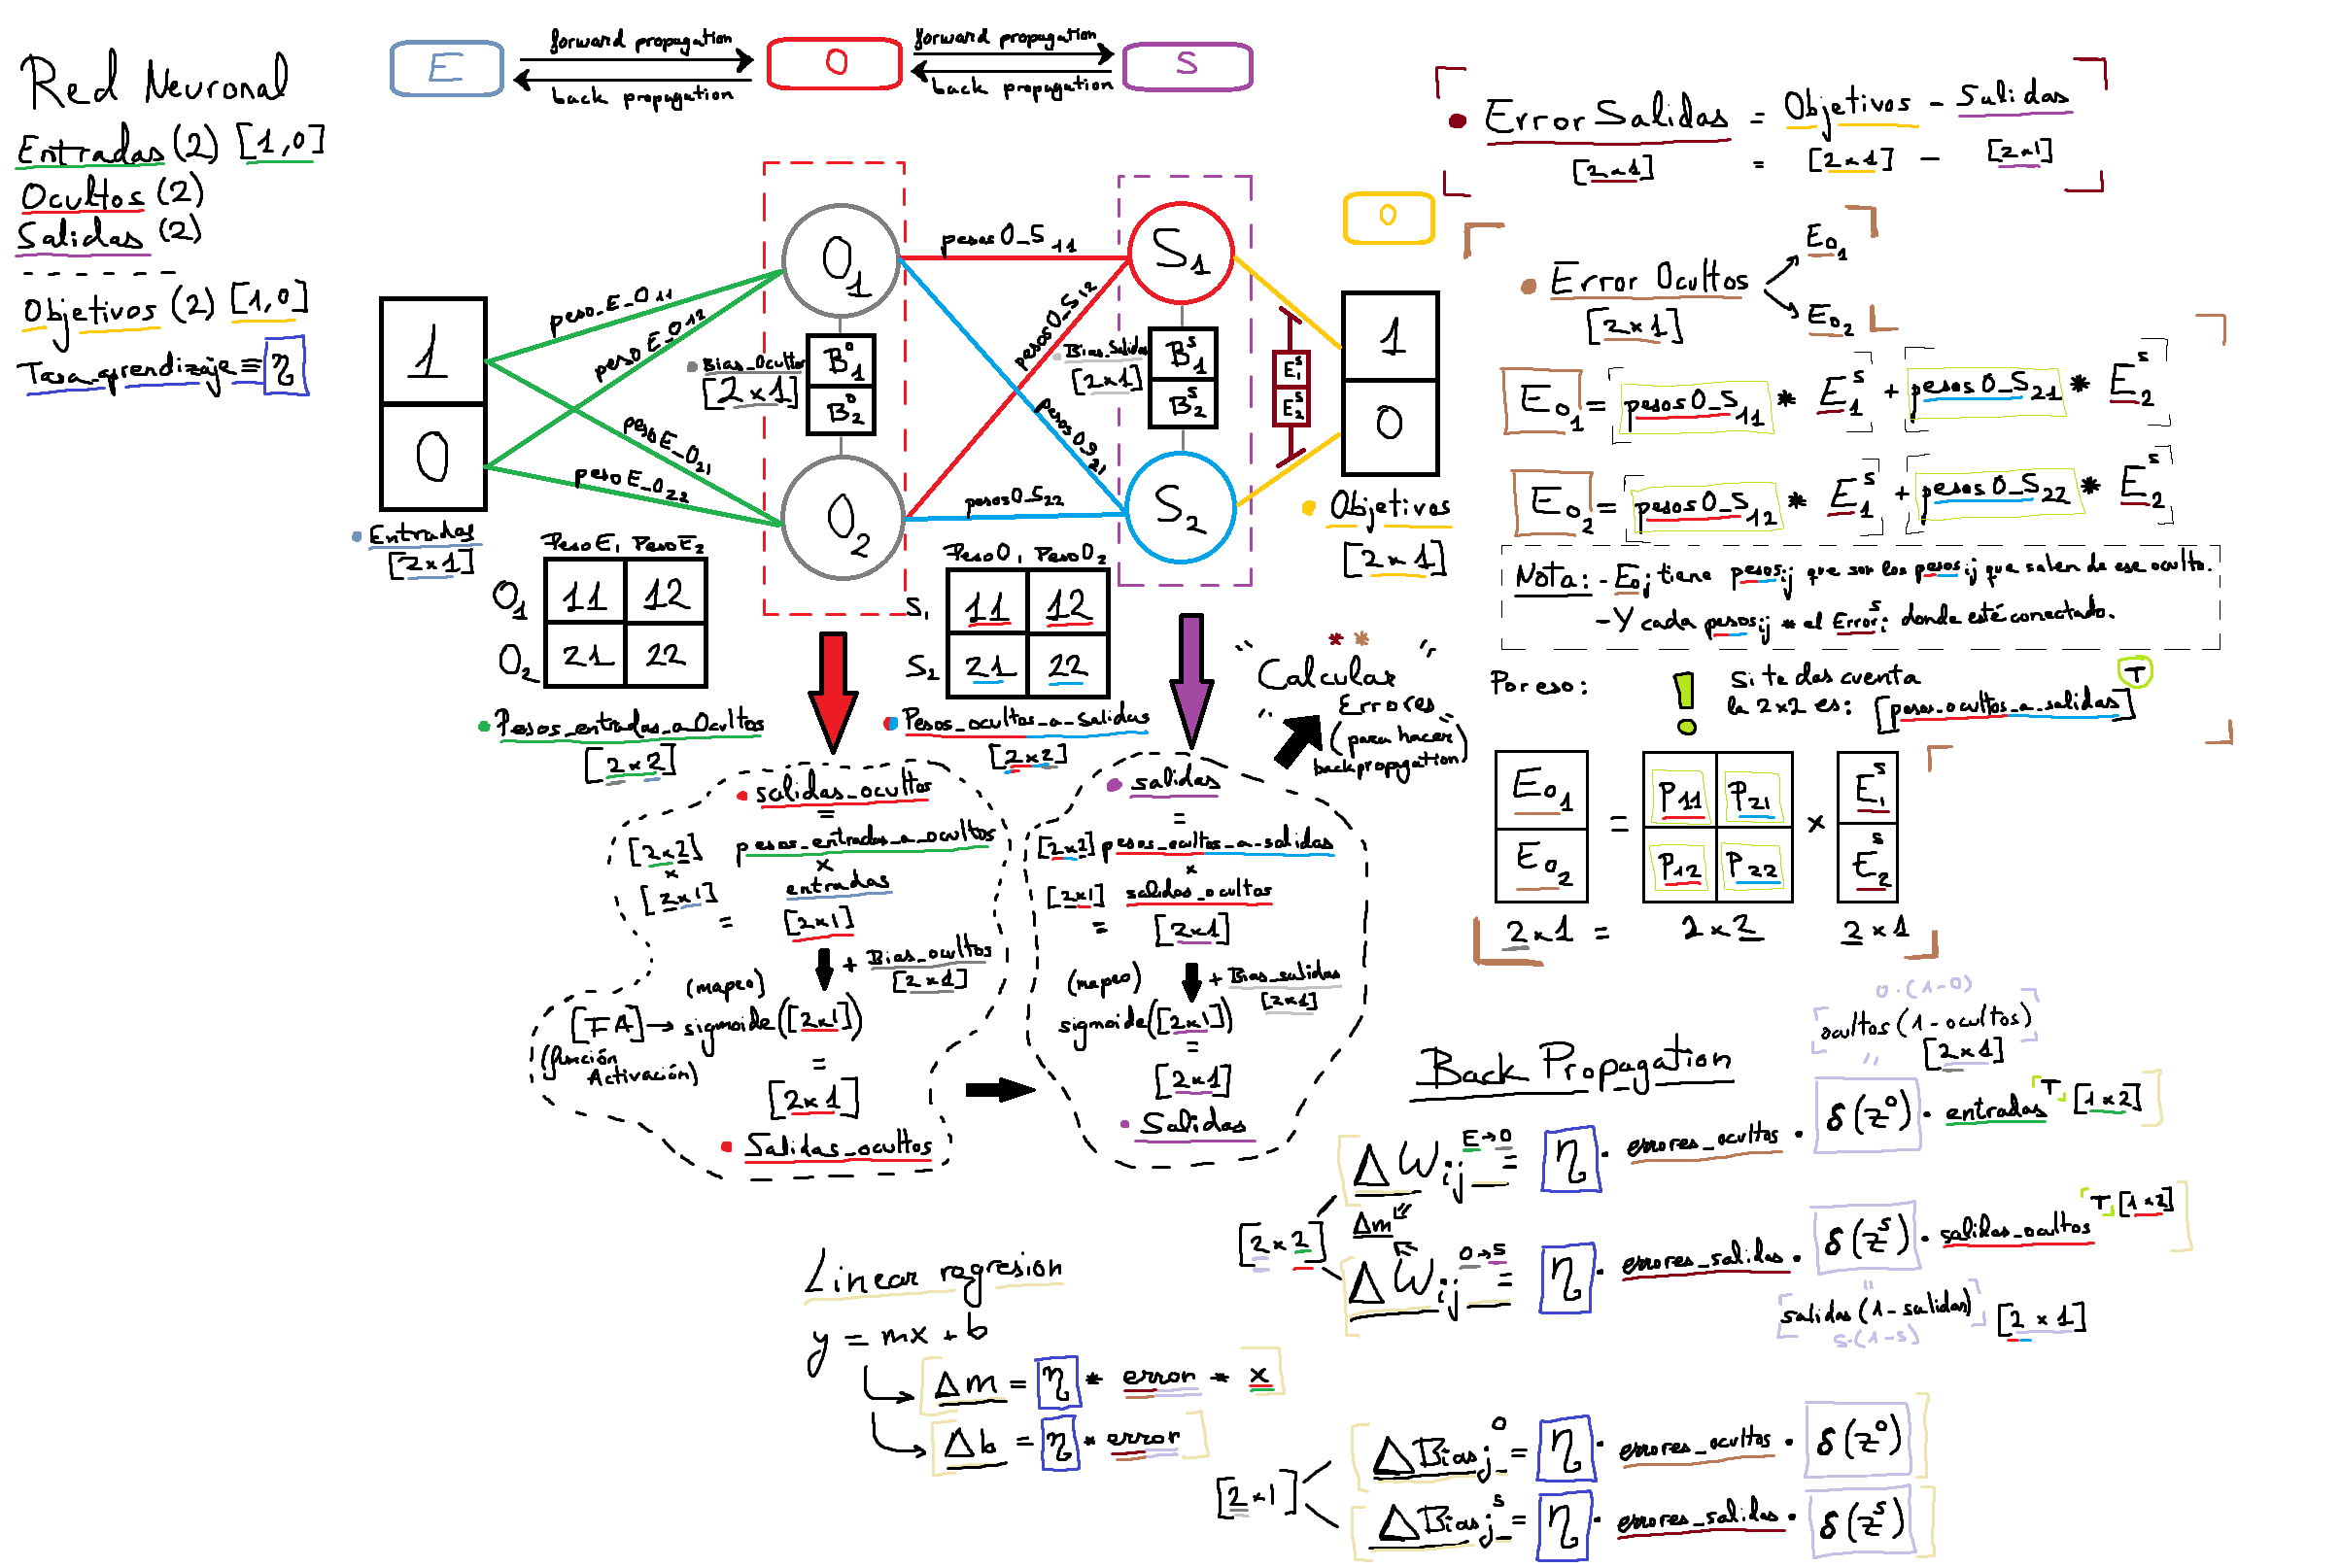 Red Neuronal
Entradas (2) [1,0]
Ocultos (2)
Salidas (2)
- - - - - -
Objetivos (2) [1,0]
Tasa_aprendizaje ≡ η
E
forward propagation
back propagation
O
forward propagation
back propagation
S
1
0
• Entradas
[2×1]
peso_E_O11
peso E_O12
peso E_O21
peso E_O22
O1
• Bias_Ocultos
[2×1]
B1^O
B2^O
O2
pesos O_S11
pesos O_S12
pesos O_S21
pesos O_S22
S1
• Bias_Salidas
[2×1]
B1^S
B2^S
S2
E1^S
E2^S
O
1
0
• Objetivos
[2×1]
Peso E1 Peso E2
O1 11 12
O2 21 22
• Pesos_entradas_a_Ocultos
[2×2]
Peso O1 Peso O2
S1 11 12
S2 21 22
• Pesos_ocultos_a_salidas
[2×2]
" * * "
Calcular
" Errores "
(para hacer)
backpropagation
• salidas_ocultos
=
[2×2] pesos_entradas_a_ocultos
× ×
[2×1] entradas
= [2×1]
+ Bias_ocultos
[2×1]
(mapeo)
[FA] → sigmoide([2×1])
(función
Activación)
=
[2×1]
• Salidas_ocultos
• salidas
=
[2×2] pesos_ocultos_a_salidas
×
[2×1] salidas_ocultos
= [2×1]
+ Bias_salidas
[2×1]
(mapeo)
sigmoide([2×1])
=
[2×1]
• Salidas
• Error Salidas = Objetivos - Salidas
[2×1] = [2×1] - [2×1]
• Error Ocultos
[2×1]
EO1
EO2
EO1 = [pesos O_S11 * E1^S] + [pesos O_S21 * E2^S]
EO2 = [pesos O_S12 * E1^S] + [pesos O_S22 * E2^S]
Nota: - EOj tiene pesosij que son los pesosij que salen de ese oculto.
- Y cada pesosij * el Errori^S donde esté conectado.
Por eso: ! Si te das cuenta
la 2×2 es: [pesos_ocultos_a_salidas]^T
EO1 = P11 P21 × E1^S
EO2 P12 P22 E2^S
2×1 = 2×2 2×1
Back Propagation
O·(1-O)
ocultos(1-ocultos)
"
[2×1]
ΔWij^E→O = η · errores_ocultos · δ(z^O) · entradas^T [1×2]
[2×2]
Δm
ΔWij^O→S = η · errores_salidas · δ(z^S) · salidas_ocultos^T [1×2]
"
salidas(1-salidas) [2×1]
S·(1-S)
Linear regresion
y = mx + b
Δm = η * error * x
Δb = η * error
[2×1]
ΔBiasj^O = η · errores_ocultos · δ(z^O)
ΔBiasj^S = η · errores_salidas · δ(z^S)